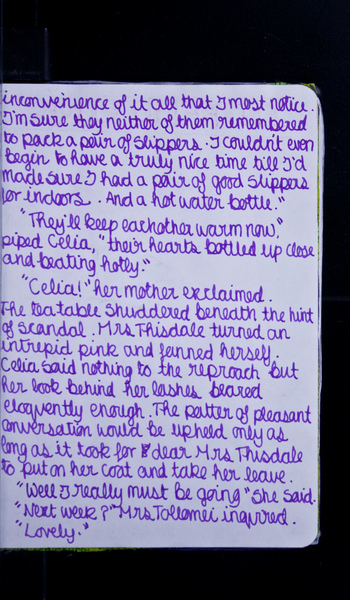 inconvenience of it all that I most notice.
I'm sure they neither of them remembered
to pack a pair of slippers. I couldn't even
begin to have a truly nice time till I'd
made sure I had a pair of good slippers
for indoors. And a hot water bottle."
"They'll keep eachother warm now,"
piped Celia, "their hearts bottled up close
and beating hotly."
"Celia!" her mother exclaimed.
The tea table shuddered beneath the hint
of scandal. Mrs Thisdale turned an
intrepid pink and fanned herself.
Celia said nothing to the reproach but
her look behind her lashes blared
eloquently enough. The patter of pleasant
conversation would be upheld only as
long as it took for dear Mrs Thisdale
to put on her coat and take her leave.
"Well I really must be going" she said.
"Next week?" Mrs Tollomei inquired.
"Lovely."